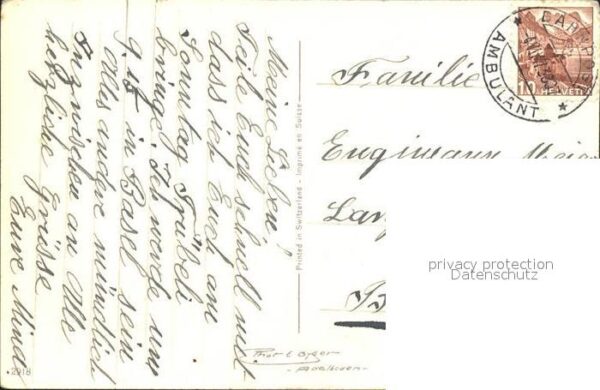 Meine Lieben!
Teile Euch schnell mit
dass ich Euch am
Sonntag Trübeli
bringe. Ich werde um
9.15 in Basel sein
Alles andere mündlich
Inzwischen an Alle
herzliche Grüsse
Eure
Printed in Switzerland - Imprimé en Suisse
Familie
Engimann
BAHNPOST
AMBULANT
10 HELVETIA
privacy protection
Datenschutz
Phot. E. Gyger
- Adelboden -
2918